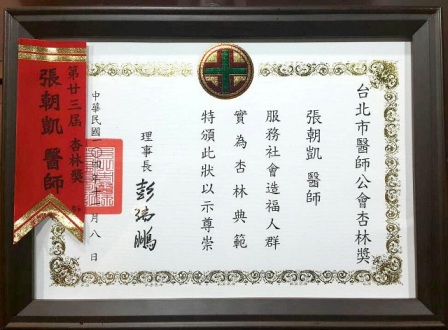 台北市醫師公會杏林獎
張朝凱 醫師
服務社會造福人群
實為杏林典範
特頒此狀以示尊崇
理事長 彭瑞鵬
中華民國一 四年 月八日
第廿三屆 杏林獎
張朝凱 醫師